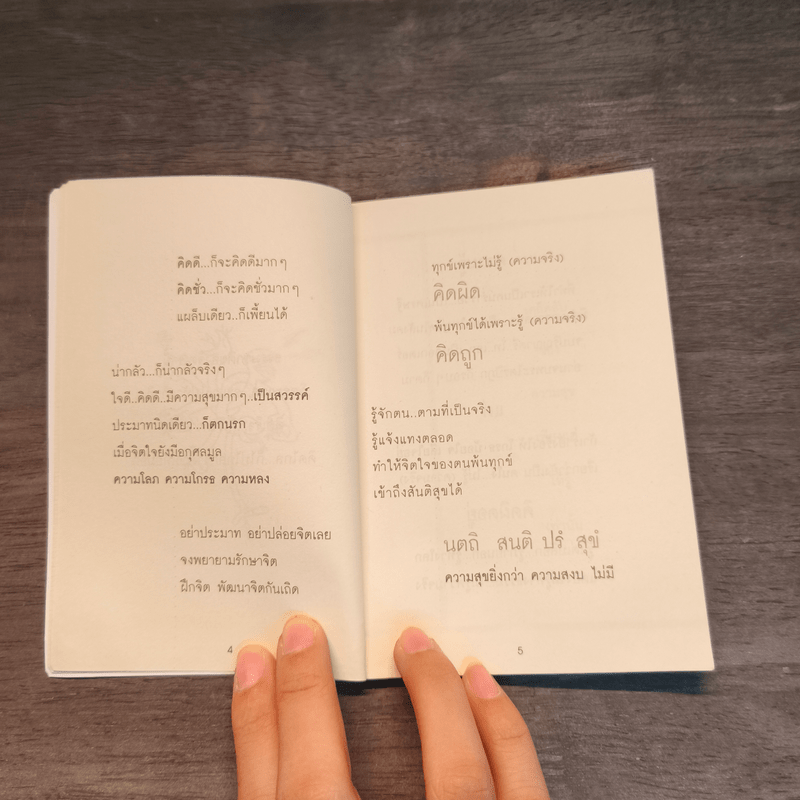 คิดดี...ก็จะคิดดีมาก ๆ
คิดชั่ว...ก็จะคิดชั่วมาก ๆ
แผล็บเดียว..ก็เพี้ยนได้
น่ากลัว...ก็น่ากลัวจริงๆ
ใจดี..คิดดี..มีความสุขมากๆ..เป็นสวรรค์
ประมาทนิดเดียว...ก็ตกนรก
เมื่อจิตใจยังมีอกุศลมูล
ความโลภ ความโกรธ ความหลง
อย่าประมาท อย่าปล่อยจิตเลย
จงพยายามรักษาจิต
ฝึกจิต พัฒนาจิตกันเถิด
4
ทุกข์เพราะไม่รู้ (ความจริง)
คิดผิด
พ้นทุกข์ได้เพราะรู้ (ความจริง)
คิดถูก
รู้จักตน..ตามที่เป็นจริง
รู้แจ้งแทงตลอด
ทำให้จิตใจของตนพ้นทุกข์
เข้าถึงสันติสุขได้
นตถิ สนติ ปรํ สุขํ
ความสุขยิ่งกว่า ความสงบ ไม่มี
5